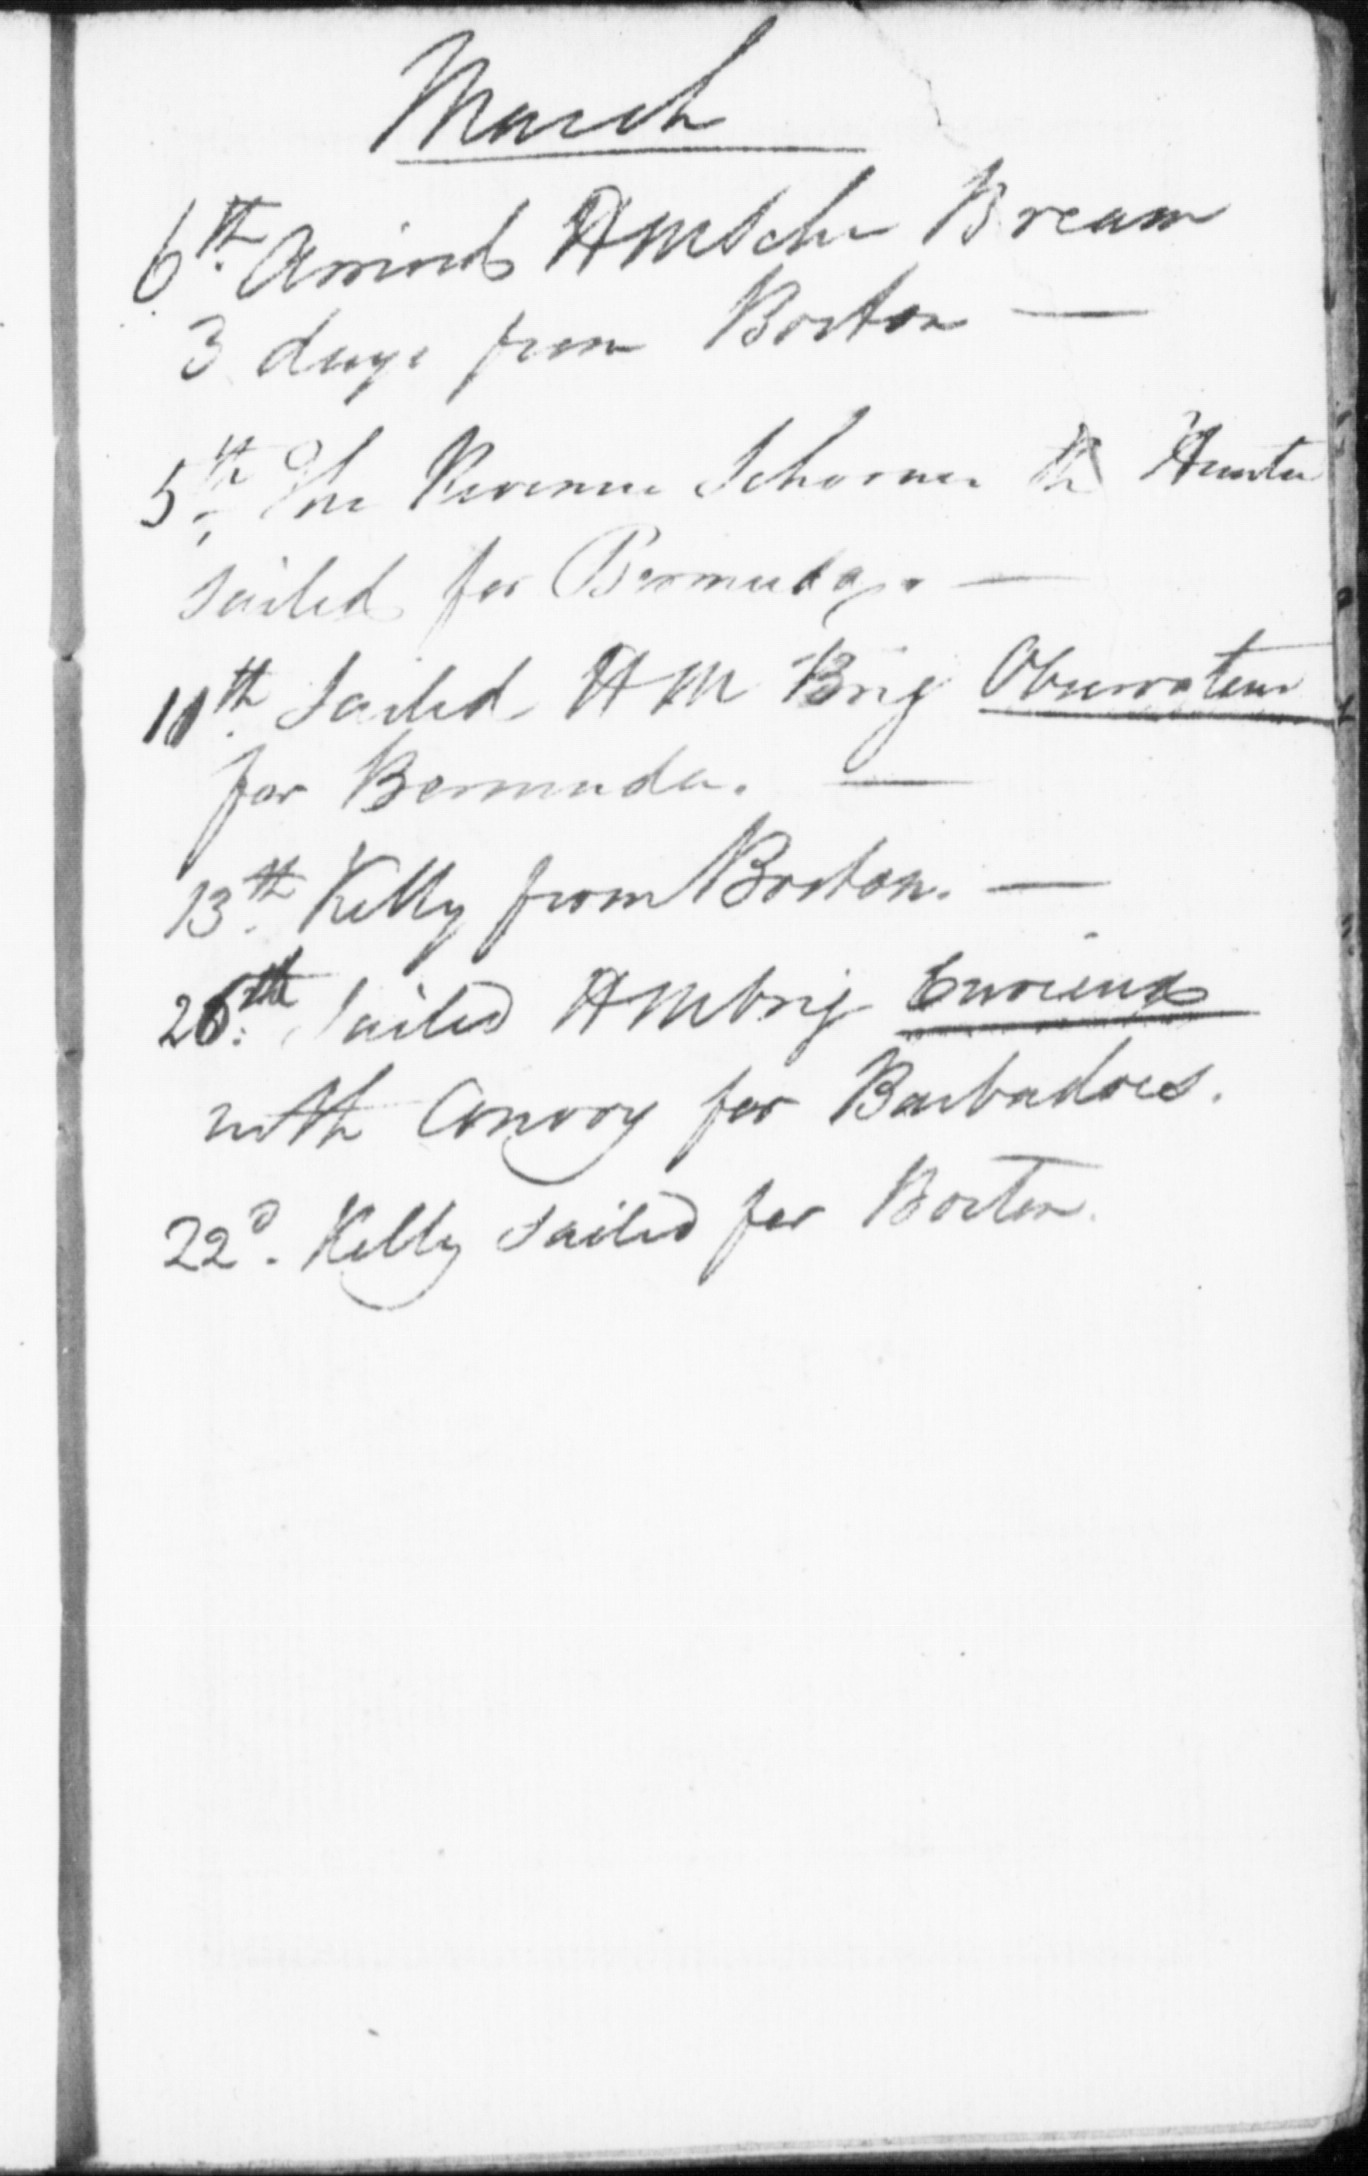 March
6th. Arrived HM Schr Bream
3 days from Boston —
5th. The Revenue Schooner the Hunter
sailed for Bermuda. —
11th. Sailed HM Brig Observateur
for Bermuda. —
13th. Kelly from Boston. —
26th. Sailed HM brig Curieux
with Convoy for Barbadoes.
22d. Kelly sailed for Boston.